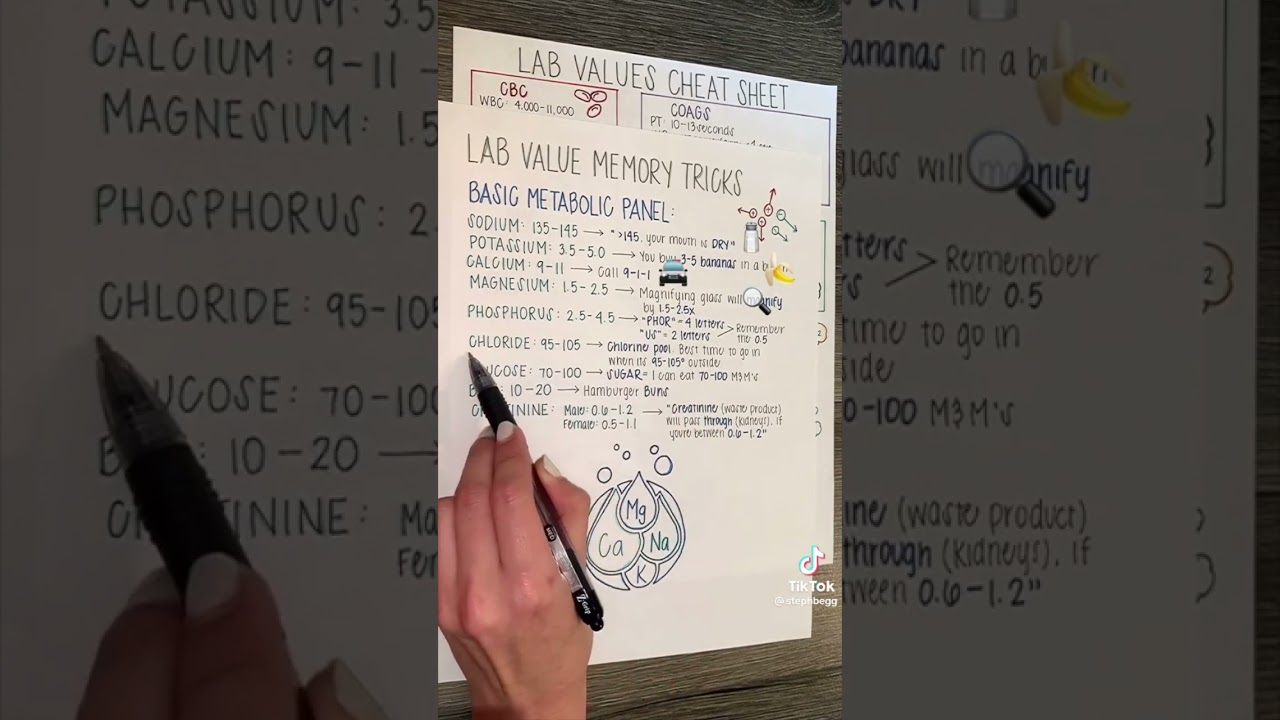 LAB VALUES CHEAT SHEET
CBC
WBC: 4,000-11,000
COAGS
PT: 10-13 seconds
LAB VALUE MEMORY TRICKS
BASIC METABOLIC PANEL:
SODIUM: 135-145 → ">145, your mouth is DRY"
POTASSIUM: 3.5-5.0 → You buy 3-5 bananas in a b
CALCIUM: 9-11 → Call 9-1-1
MAGNESIUM: 1.5-2.5 → Magnifying glass will magnify
by 1.5-2.5x
PHOSPHORUS: 2.5-4.5 → "PHOR" = 4 letters
"US" = 2 letters > Remember
the 0.5
CHLORIDE: 95-105 → Chlorine pool. Best time to go in
when its 95-105° outside
UCOSE: 70-100 → SUGAR = I can eat 70-100 M&M's
B : 10-20 → Hamburger Buns
CR TININE: Male: 0.6-1.2 → "Creatinine (waste product)
Female: 0.5-1.1 will pass through (kidneys), if
youre between 0.6-1.2"
Mg
Ca
Na
K
TikTok
@stephbegg
POTASSIUM: 3.5
CALCIUM: 9-11 -
MAGNESIUM: 1.5
PHOSPHORUS: 2.
CHLORIDE: 95-105
UCOSE: 70-100
B : 10-20
CR TININE: Ma
Fe
DRY"
bananas in a b
glass will magnify
tters
s > Remember
the 0.5
time to go in
outside
0-100 M&M's
ine (waste product)
through (kidneys), if
ween 0.6-1.2"
2